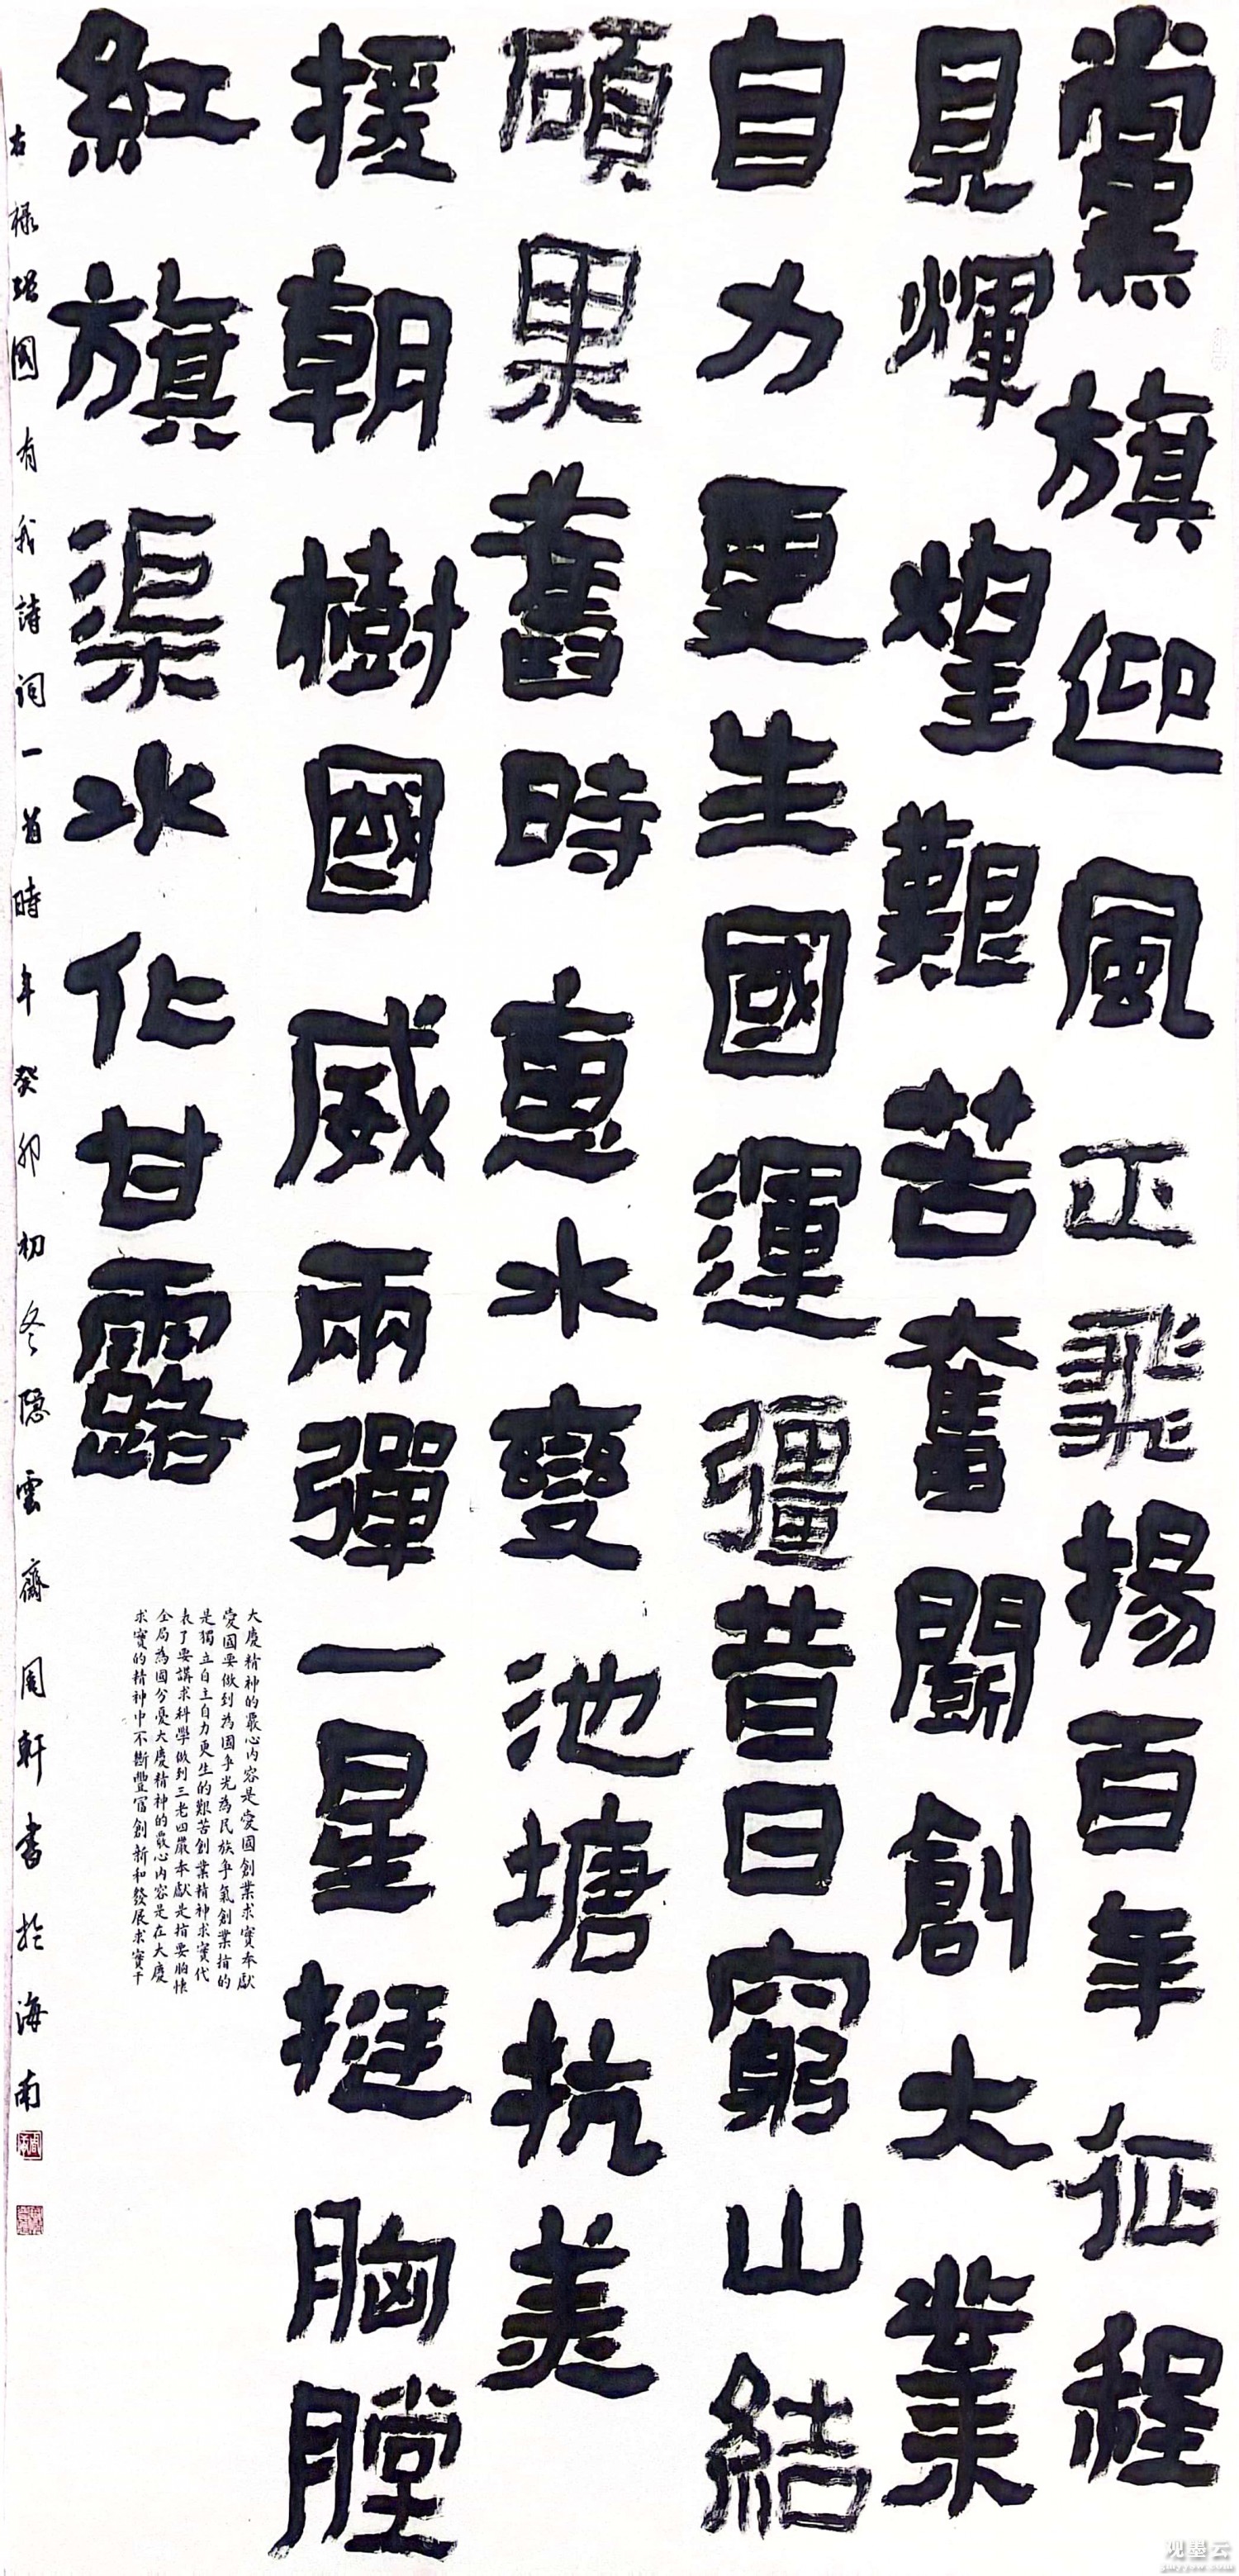 黨旗迎風正飛揚百年征程
見輝煌艱苦奮鬭創大業
自力更生國運彊昔日窮山結
碩果舊時惠水變池塘抗美
援朝樹國威兩彈一星挺胸膛
紅旗渠水化甘露
大慶精神的覈心内容是愛國創業求實奉獻
愛國要做到為國爭光為民族爭氣創業指的
是獨立自主自力更生的艱苦創業精神求實代
表了要講求科學做到三老四嚴奉獻是指要胸懷
全局為國分憂大慶精神的覈心内容是在大慶
求實的精神中不斷豐富創新和發展求實干
右祿 國有我詩詞一首時年癸卯初冬隐雲齋周軒書於海南
观墨云